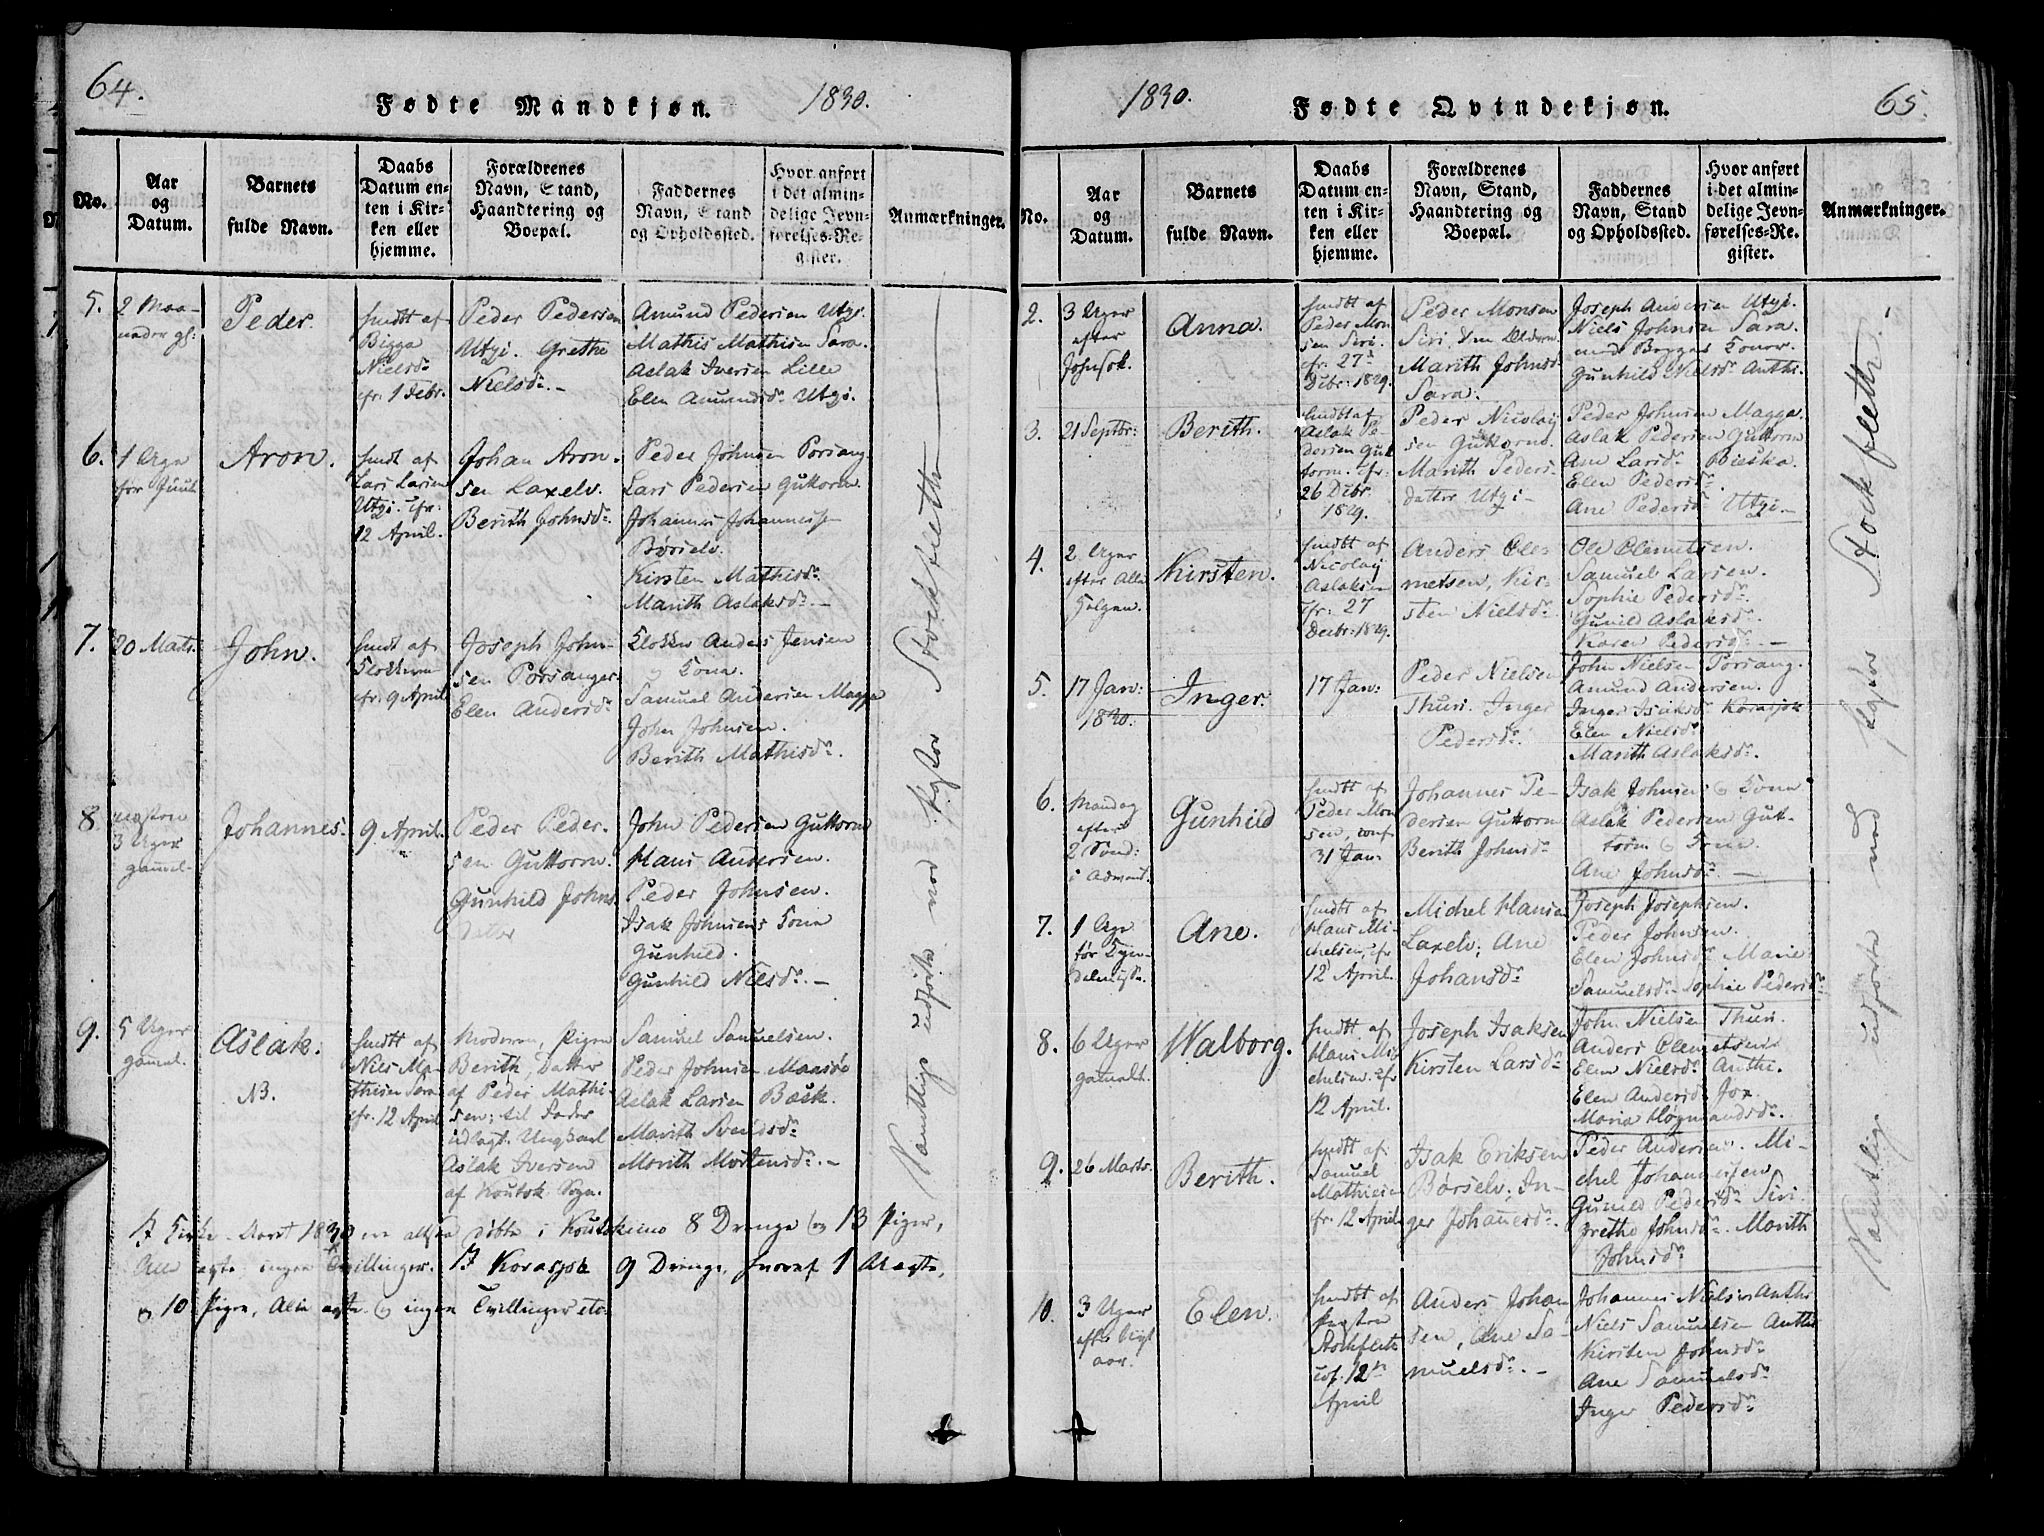 64.
Fødte Mandkjøn.
1830.
No.
Aar
og
Datum.
Barnets
fulde Navn.
Daabs
Datum en-
ten i Kir-
ken eller
hjemme.
Forældrenes
Navn, Stand,
Haandtering og
Boepæl.
Faddernes
Navn, Stand
og Opholdssted.
Hvor anført
i det almin-
delige Jevn-
førelses-Re-
gister.
Anmærkninger.
5.
2 Maa-
neder gl:
Peder.
hmdt af
Bigga
Nielsdr
cfr. 1 Febr.
Peder Pedersen
Utzi. Grethe
Nielsdr. -
Amund Pedersen Utzi.
Mathis Mathisen Sara.
Aslak Iversen Lille
Elen Amundsdr Utzi.
6.
1 Uge
før Juul
Aron.
hmdt af
Lars Larsen
Utzi. cfr:
12 April.
Johan Aron-
sen Laxelv.
Berith Johnsdr.
Peder Johnsen Porsang.
Lars Pedersen Guttorm.
Johannes Johannes
Børselv.
Kirsten Mathisdr
Marith Aslaksdr. -
7.
20 Marts.
John.
hmdt af
Klokkeren
cfr. 9 April
Joseph John-
sen Porsanger.
Elen Andersdr
Klokker Anders Jensen
Kona.
Samuel Andersen Magga
John Johnsen.
Berith Mathisdr.
8.
næsten
3 Uger
gammel.
Johannes.
9 April.
Peder Peder-
sen Guttorm.
Gunhild Johns
datter
John Pedersen Guttorm
Hans Andersen.
Peder Johnsen.
Isak Johnsens Kona
Gunhild.
Gunhild Nielsdr. -
9.
5 Uger
gammel.
Aslak.
NB.
hmdt af
Niels Ma-
thisen Sara
cfr. 12 April
Moderen, Pigen
Berith, Datter
af Peder Mathi-
sen; til Fader
udlagt Ungkarl
Aslak Iversen
af Koutok. Sogn.
Samuel Samuelsen.
Peder Johnsen Maasø
Aslak Larsen Bæsk.
Marith Svendsdr
Morith Mortensdr. -
I Kirke-Aaret 1830 ere altsaa døbte i Koutokeino 8 Drenge og 13 Piger,
Alle ægte, ingen Tvillinger. I Korasjok 9 Drenge, hvoraf 1 Uægte,
og 10 Piger, Alle ægte og ingen Tvillinger etc.
Samtlige udførte med Pastor Stockfleth
1830.
Fødte Qvindekjøn.
65.
No.
Aar
og
Datum.
Barnets
fulde Navn.
Daabs
Datum en-
ten i Kir-
ken eller
hjemme.
Forældrenes
Navn, Stand,
Haandtering og
Boepæl.
Faddernes
Navn, Stand
og Opholdssted.
Hvor anført
i det almin-
delige Jevn-
førelses-Re-
gister.
Anmærkninger.
2.
3 Uger
efter
Johnsok.
Anna.
hmdt af
Peder Mon
sen Siri.
cfr. 27
Dcbr: 1829.
Peder Monsen
Siri, den Eldre.
Marith Johnsd
Sara.
Joseph Andersen Utzi.
Niels Johnsen Sara
med Begges Koner.
Gunhild Nielsdr Anthi.
3.
21 Septbr:
Berith.
hmdt af
Aslak Pe-
dersen Gut
torm. cfr:
26 Dcbr.
1829.
Peder Nicolay
sen Guttorm.
Marith Peders
datter Utzi -
Peder Johnsen Magga.
Aslak Pedersen Guttorm
Ane Larsdr Bieska.
Elen Pedersdr
Ane Pedersdr Utzi. -
4.
2 Uger
efter Alle
helgen.
Kirsten.
hmdt af
Nicolay
Aslaksen
cfr: 27
Decbr: 1829.
Anders Cle-
metsen, Kir-
sten Nielsdr
Ole Clemetsen.
Samuel Larsen.
Sophie Pedersdr.
Gunild Aslaksdr.
Karen Pedersdr. -
5.
17 Jan:
1830.
Inger.
17 Jan:
Peder Nielsen
Thuri. Inger
Pedersdr.
John Nielsen Porsang.
Amund Andersen.
Inger Isaksdr Korasjok
Elen Nielsdr
Marith Aslaksdr.
6.
Mandag
efter
2 Sønd:
i Advent.
Gunhild
hmdt af
Peder Mon
sen, conf.
31 Jan.
Johannes Pe-
dersen Guttorm
Berith Johnsdr
Isak Johnsen og Kona
Aslak Pedersen Gut-
torm og Kona.
Ane Johnsdr. -
7.
1 Uge
før Kyn-
delmisse.
Ane.
hmdt af
Hans Mi-
chelsen, cfr
12 April.
Michel Hansen
Laxelv; Ane
Johansdr
Joseph Josephsen.
Peder Johnsen.
Elen Johnsdr Marie
Samuelsdr Sophie Pedersdr
8.
6 Uger
gammelt.
Walborg.
hmdt af
Hans Mi-
chelsen. cfr
12 April.
Joseph Isaksen
Kirsten Larsdr
John Nielsen Thuri.
Anders Clemetsen
Elen Nielsdr Anthi.
Elen Andersdr Jox.
Maria Høgmandsdr.
9.
26 Marts.
Berith.
hmdt af
Samuel
Mathisen
cfr. 12 April.
Isak Eriksen
Børselv; In-
ger Johanesdr.
Peder Andersen. Mi-
chel Johannesen
Gunild Pedersdr Siri.
Grethe Johnsdr. Marith
Johnsdr
10.
3 Uger
efter Nyt
aar.
Elen.
hmdt af
Pastor
Stockfleth
cof. 12te
April
Anders Johan
sen, Ane Sa-
muelsdr. -
Johannes Nielsen Anthi
Niels Samuelsen Anthi
Kirsten Johnsdr
Ane Samuelsdr
Inger Pedersdr
Samtlige udførte med Pastor Stockfleth. -